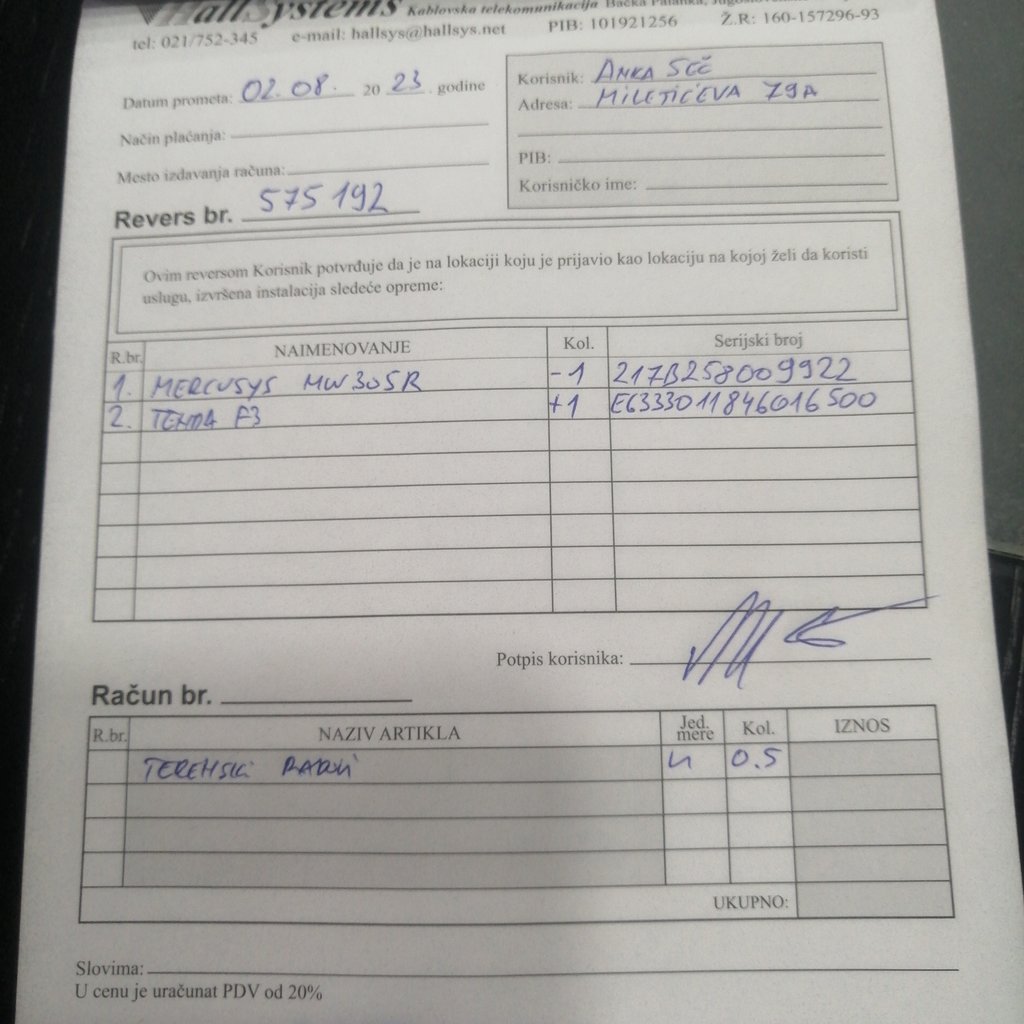 HallSystems Kablovska telekomunikacija Bačka Palanka,
tel: 021/752-345 e-mail: hallsys@hallsys.net PIB: 101921256 Ž.R: 160-157296-93
Datum prometa: 02.08. 20 23. godine
Način plaćanja:
Mesto izdavanja računa:
Revers br. 575 192
Korisnik: ANKA SEČ
Adresa: MILETIĆEVA 79A
PIB:
Korisničko ime:
Ovim reversom Korisnik potvrđuje da je na lokaciji koju je prijavio kao lokaciju na kojoj želi da koristi
uslugu, izvršena instalacija sledeće opreme:
R.br. NAIMENOVANJE Kol. Serijski broj
1. MERCUSYS MW305R -1 217B258009922
2. TENDA F3 +1 E6333011846016500
Potpis korisnika:
Račun br.
R.br. NAZIV ARTIKLA Jed. mere Kol. IZNOS
TERENSKI RADNI h 0.5
UKUPNO:
Slovima:
U cenu je uračunat PDV od 20%